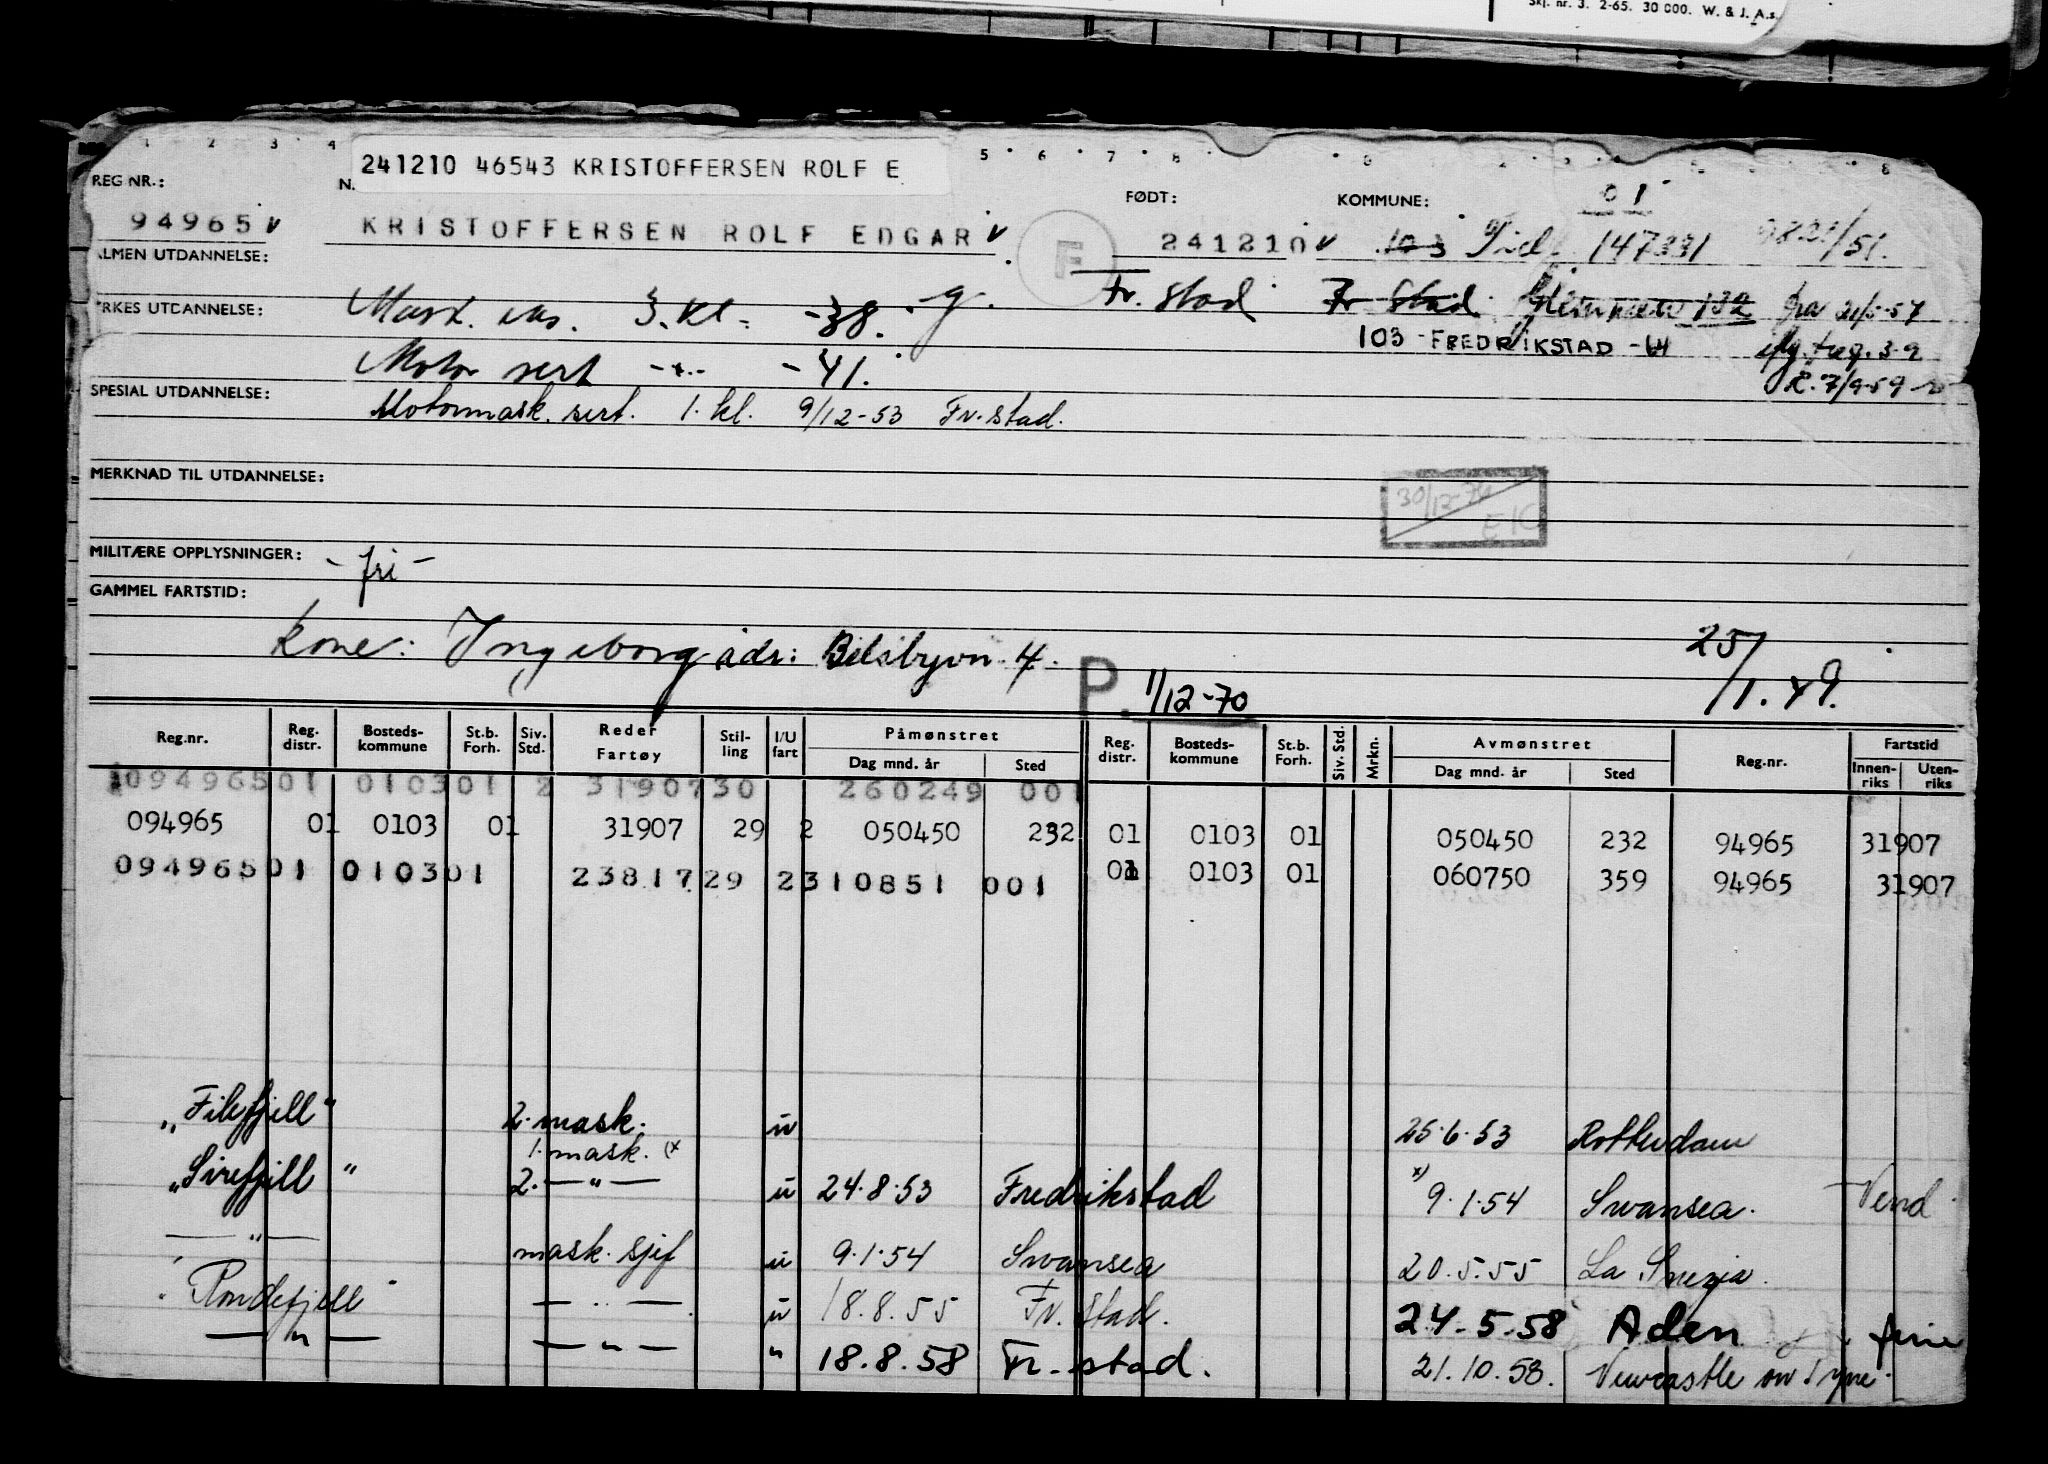 Skj. nr. 3. 2-65. 30 000. W. & J. A.s.
1 2 3 4 5 6 7 8
241210 46543 KRISTOFFERSEN ROLF E
REG NR.: N. FØDT: KOMMUNE: 01
94965 v KRISTOFFERSEN ROLF EDGAR v F 241210 v 103 147331 /51.
ALMEN UTDANNELSE:
Fr. stad Fr stad Glemmen 132 fra 21/5-57
YRKES UTDANNELSE: Mask. ass. 3. kl. -38. g.
103 - FREDRIKSTAD -
Motor sert -"- -41.
R. 7/9-59
SPESIAL UTDANNELSE: Motormask. sert. 1. kl. 9/12-53 Fr. stad.
MERKNAD TIL UTDANNELSE:
30/12-70
EK
MILITÆRE OPPLYSNINGER: - fri -
GAMMEL FARTSTID:
Kone: Ingeborg adr: Bilsbyvn. 4.
25/1.49.
P. 1/12-70
Reg.nr. Reg. distr. Bosteds-kommune St.b. Forh. Siv. Std. Reder Fartøy Stil-ling I/U fart Påmønstret Dag mnd. år Sted Reg. distr. Bosteds-kommune St.b. Forh. Siv. Std. Mrkn. Avmønstret Dag mnd. år Sted Reg.nr. Fartstid Innen-riks Uten-riks
094965 01 0103 01 2 31907 30 260249 001
094965 01 0103 01 31907 29 2 050450 232 01 0103 01 050450 232 94965 31907
094965 01 0103 01 23817 29 2 310851 001 01 0103 01 060750 359 94965 31907
"Filefjell" 2. mask. u 25.6.53 Rotterdam
1. mask. (x
"Sirefjell" 2. -"- u 24.8.53 Fredrikstad x) 9.1.54 Swansea. Vend.
-"- mask. sjef u 9.1.54 Swansea 20.5.55 La Spezia.
"Rondefjell" -"- u 18.8.55 Fr. stad. 24-5-58 Aden ferie
-"- -"- " 18.8.58 Fr. stad. 21.10.58. Newcastle on Tyne.